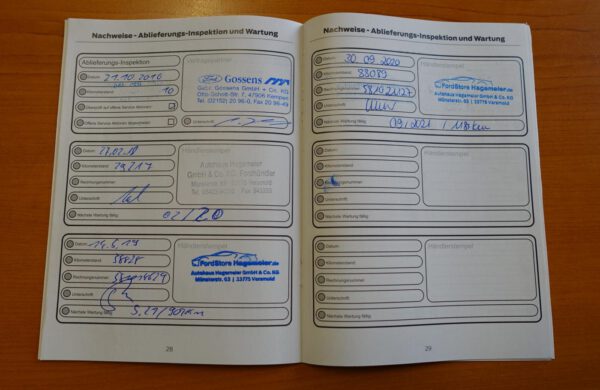 Nachweise - Ablieferungs-Inspektion und Wartung
Ablieferungs-Inspektion
Vertragspartner
Datum 21.10.2016
Kilometerstand 10
Überprüft auf offene Service Aktionen
Offene Service Aktionen abgearbeitet
Unterschrift
Ford Gossens
Gebr. Gossens GmbH + Co. KG
Otto-Schott-Str. 7, 47906 Kempen
Tel. (02152) 20 96-0, Fax 20 96-49
Datum 27.02.18
Händlerstempel
Kilometerstand
Rechnungsnummer
Unterschrift
Nächste Wartung fällig 02/20
Autohaus Hagemeier
GmbH & Co. KG, Fordhändler
Datum 14.6.19
Händlerstempel
Kilometerstand
Rechnungsnummer
Unterschrift
Nächste Wartung fällig
FordStore Hagemeier.de
Autohaus Hagemeier GmbH & Co. KG
Münsterstr. 63 | 33775 Versmold
28
Nachweise - Ablieferungs-Inspektion und Wartung
Datum 30.09.2020
Händlerstempel
Kilometerstand 88089
Rechnungsnummer
Unterschrift
Nächste Wartung fällig 09/2021
FordStore Hagemeier.de
Autohaus Hagemeier GmbH & Co. KG
Münsterstr. 63 | 33775 Versmold
Datum
Händlerstempel
Kilometerstand
Rechnungsnummer
Unterschrift
Nächste Wartung fällig
Datum
Händlerstempel
Kilometerstand
Rechnungsnummer
Unterschrift
Nächste Wartung fällig
29